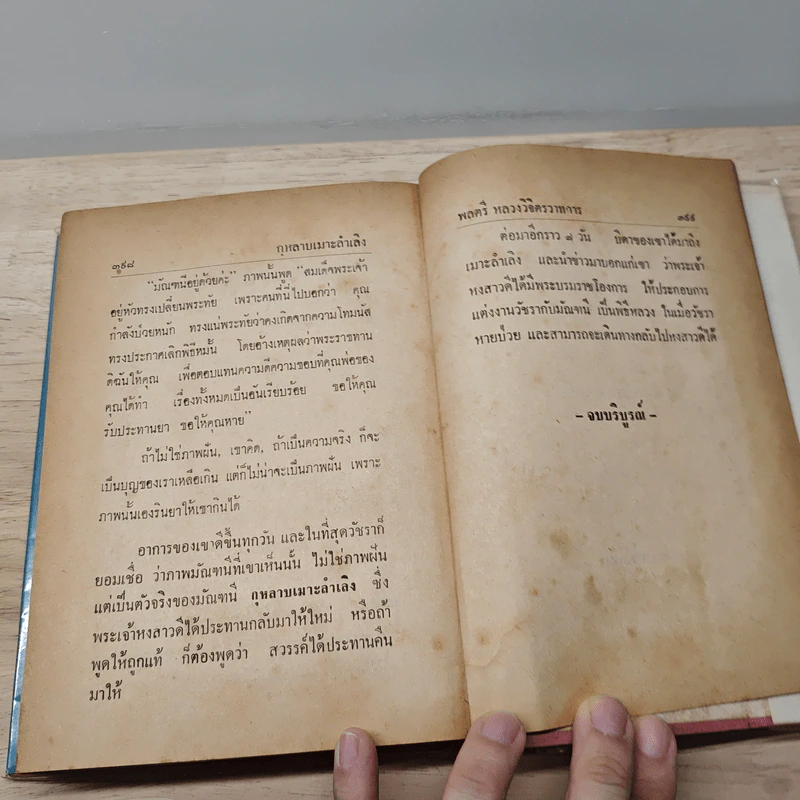 ๓๙๘ กุหลาบเมาะลำเลิง
"มัณฑนีอยู่ด้วยค่ะ" ภาพนั้นพูด "สมเด็จพระเจ้า
อยู่หัวทรงเปลี่ยนพระทัย เพราะคนที่นี่ไปบอกว่า คุณ
กำลังป่วยหนัก ทรงแน่พระทัยว่าคงเกิดจากความโทมนัส
ทรงประกาศเลิกพิธีหมั้น โดยอ้างเหตุผลว่าพระราชทาน
ดิฉันให้คุณ เพื่อตอบแทนความดีความชอบที่คุณพ่อของ
คุณได้ทำ เรื่องทั้งหมดเป็นอันเรียบร้อย ขอให้คุณ
รับประทานยา ขอให้คุณหาย"
ถ้าไม่ใช่ภาพฝัน, เขาคิด, ถ้าเป็นความจริง ก็จะ
เป็นบุญของเราเหลือเกิน แต่ก็ไม่น่าจะเป็นภาพฝัน เพราะ
ภาพนั้นเองรินยาให้เขากินได้
อาการของเขาดีขึ้นทุกวัน และในที่สุดวัชราก็
ยอมเชื่อ ว่าภาพมัณฑนีที่เขาเห็นนั้น ไม่ใช่ภาพฝัน
แต่เป็นตัวจริงของมัณฑนี กุหลาบเมาะลำเลิง ซึ่ง
พระเจ้าหงสาวดีได้ประทานกลับมาให้ใหม่ หรือถ้า
พูดให้ถูกแท้ ก็ต้องพูดว่า สวรรค์ได้ประทานคืน
มาให้
พลตรี หลวงวิจิตรวาทการ ๓๙๙
ต่อมาอีกราว ๘ วัน บิดาของเขาได้มาถึง
เมาะลำเลิง และนำข่าวมาบอกแก่เขา ว่าพระเจ้า
หงสาวดีได้มีพระบรมราชโองการ ให้ประกอบการ
แต่งงานวัชรากับมัณฑนี เป็นพิธีหลวง ในเมื่อวัชรา
หายป่วย และสามารถจะเดินทางกลับไปหงสาวดีได้
– จบบริบูรณ์ –